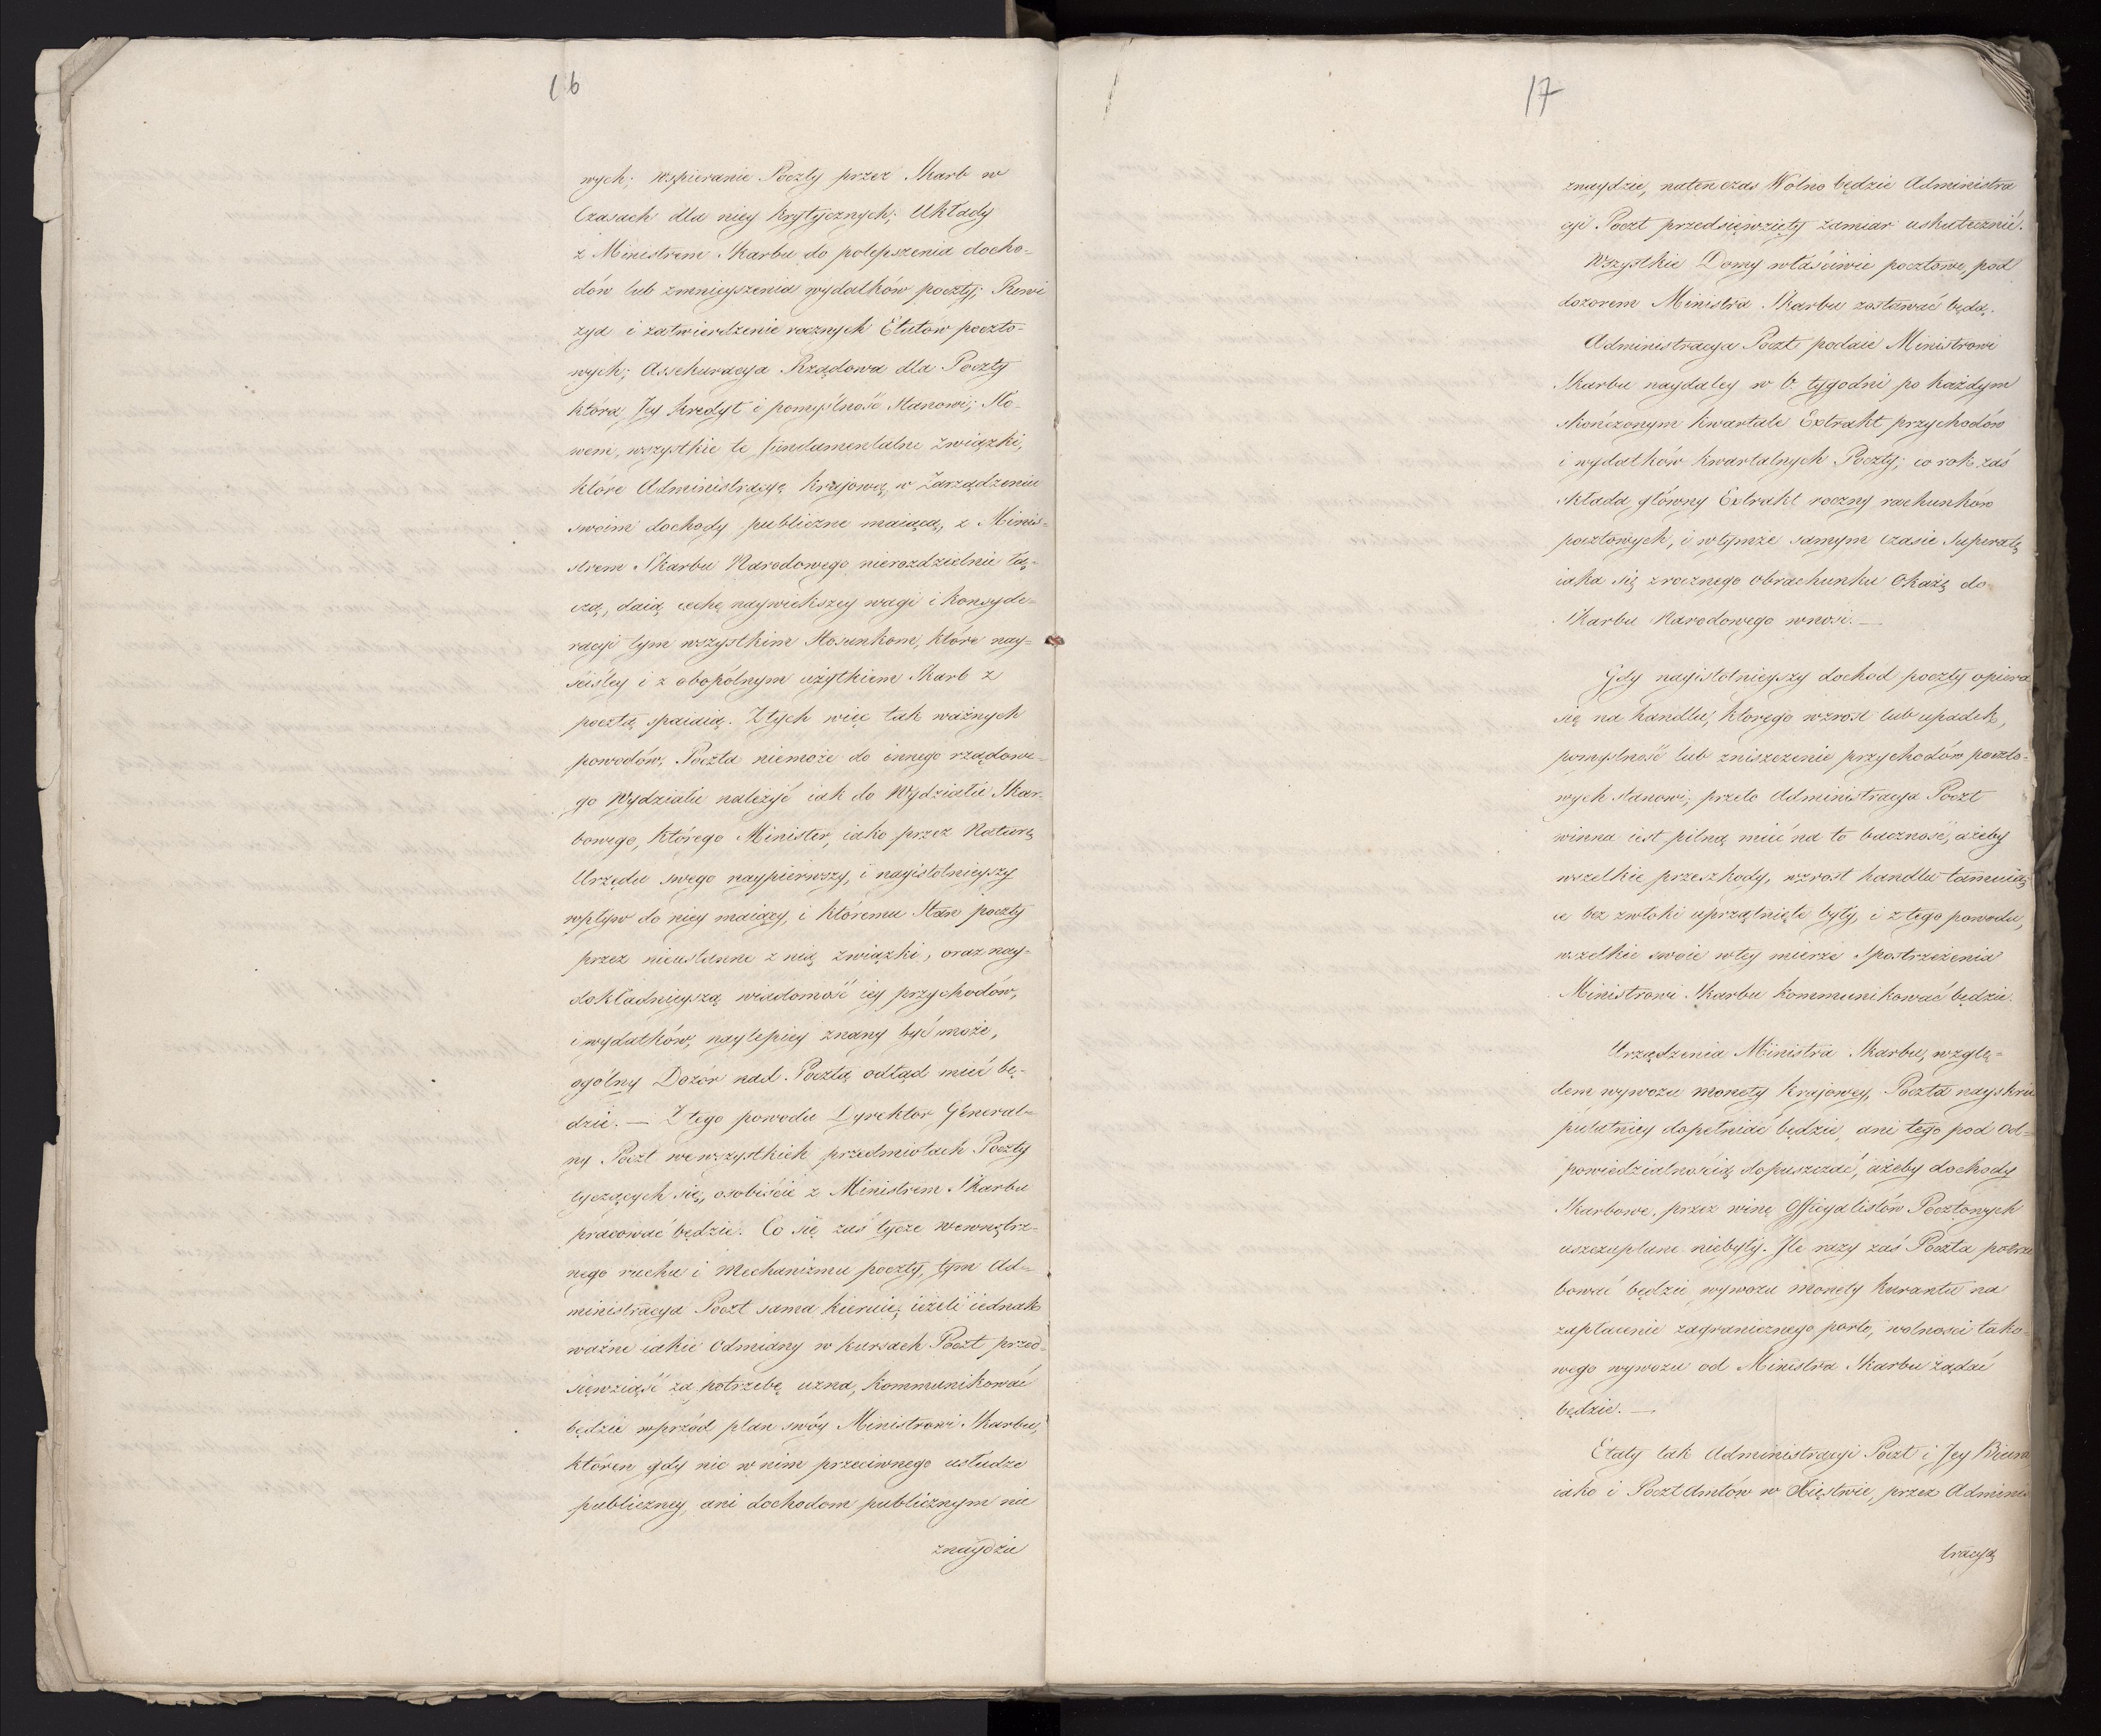 16
wych; wspieranie Poczty przez Skarb w
Czasach dla niey krytycznych; Układy
z Ministrem Skarbu do polepszenia docho-
dów lub zmnieyszenia wydatkow poczty; Rewi
zya i zatwierdzenie rocznych Etatów poczto-
wych; Assekuracya Rządowa dla Poczty
która Jey kredyt i pomyślność Stanowi; Sło-
wem, wszystkie te fundamentalne związki,
które Administracyą krajową, w Zarządzeniu
swoim dochody publiczne maiącą, z Minis-
strem Skarbu Narodowego nierozdzielnie łą-
czą, daią cechę naywiekszey wagi i konsyde-
racyi tym wszystkim Stosunkom, które nay-
ściśley i z obopólnym użytkiem Skarb z
pocztą spaiaią. Z tych więc tak ważnych
powodów, Poczta niemoże do innego rządowe-
go Wydziału należyć iak do Wydziału Skar-
bowego, którego Minister, iako przez Naturę
Urzędu swego naypierwszy, i nayistotnieyszy
wpływ do niey maiący, i któremu Stan poczty
przez nieustanne z nią związki, oraz nay-
dokładnieyszą wiadomość iey przychodów,
i wydatków, naylepiey znany być może,
ogólny Dozór nad Pocztą odtąd mieć bę-
dzie. — Z tego powodu Dyrektor General-
ny Poczt we wszystkich przedmiotach Poczty
tyczących się, osobiście z Ministrem Skarbu
pracować będzie. Co się zaś tycze wewnętrz-
nego ruchu i Mechanizmu poczty, tym Ad-
ministracya Poczt sama kieruie; ieżeli iednak
ważne iakie odmiany w kursach Poczt przed-
sięwziąść za potrzebę uzna, kommunikować
będzie wprzód plan swóy Ministrowi Skarbu,
któren gdy nic w nim przeciwnego usłudze
publiczney, ani dochodom publicznym nie
znaydzie
17
znaydzie, natenczas Wolno będzie Administra
cyi Poczt przedsięwzięty zamiar uskutecznić.
Wszystkie Domy właściwie pocztowe, pod
dozorem Ministra Skarbu zostawać będą.
Administracya Poczt podaie Ministrowi
Skarbu naydaley w 6. tygodni po każdym
skończonym kwartale Extrakt przychodów
i wydatków kwartalnych Poczty; co rok zaś
składa główny Extrakt roczny rachunków
pocztowych, i w tymże samym czasie Superatę
iaka się z rocznego obrachunku Okażę do
Skarbu Narodowego wnosi. —
Gdy nayistotnieyszy dochod poczty opiera
się na handlu, ktorego wzrost lub upadek,
pomyslność lub zniszczenie przychodów poczto-
wych stanowi; przeto Administracya Poczt
winna iest pilną mieć na to baczność, ażeby
wszelkie przeszkody, wzrost handlu tamuią
ce bez zwłoki uprzątnięte były, i z tego powodu,
wszelkie swoie w tey mierze Spostrzeżenia
Ministrowi Skarbu kommunikować będzie.
Urządzenia Ministra Skarbu, wzglę-
dem wywozu monety krajowey, Poczta nayskru
pulatniey dopełniać będzie, ani tego pod od-
powiedzialnością dopuszczać, ażeby dochody
Skarbowe, przez winę Officyalistów Pocztowych
uszczuplane niebyły. Ile razy zaś Poczta potrze
bować będzie wywozu monety kurantu na
zapłacenie zagranicznego porto, wolnosci tako-
wego wywozu od Ministra Skarbu żądać
będzie. —
Etaty tak Administracyi Poczt i Jey Biura
iako i PocztAmtów w Xięstwie, przez Adminis
tracyą